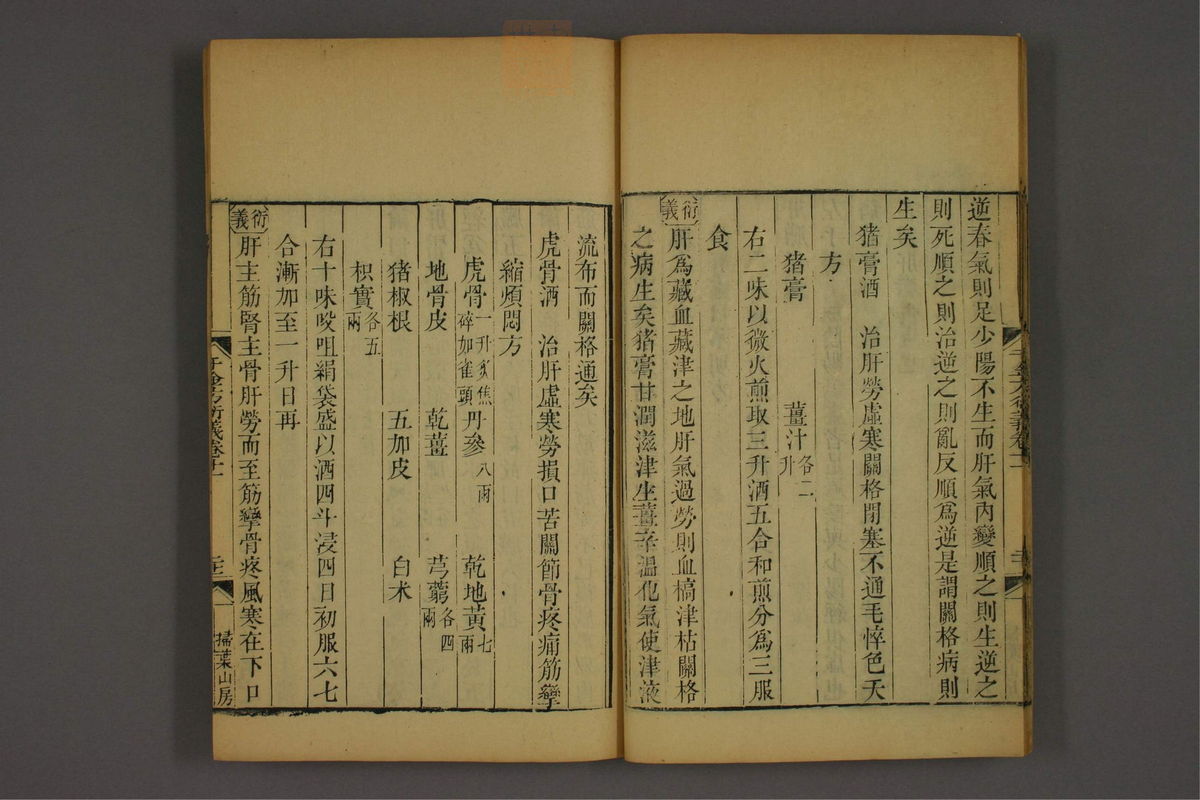 逆春氣則足少陽不生而肝氣內變順之則生逆之
則死順之則治逆之則亂反順爲逆是謂關格病則
生矣
猪膏酒　治肝勞虛寒關格閉塞不通毛悴色夭
方
猪膏　薑汁各二升
右二味以微火煎取三升酒五合和煎分爲三服
食
衍義　肝爲藏血藏津之地肝氣過勞則血槁津枯關格
之病生矣猪膏甘潤滋津生薑辛溫化氣使津液
流布而關格通矣
虎骨酒　治肝虛寒勞損口苦關節骨疼痛筋攣
縮煩悶方
虎骨一升炙焦碎如雀頭　丹參八兩　乾地黃七兩
地骨皮　乾薑　芎藭各四兩
猪椒根　五加皮　白术
枳實各五兩
右十味㕮咀絹袋盛以酒四斗浸四日初服六七
合漸加至一升日再
衍義　肝主筋腎主骨肝勞而至筋攣骨疼風寒在下口
千金方衍義卷十一
掃葉山房